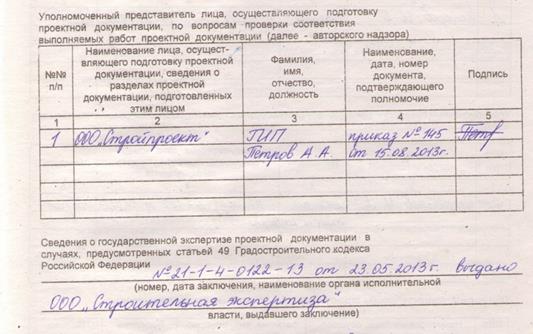 Уполномоченный представитель лица, осуществляющего подготовку
проектной документации, по вопросам проверки соответствия
выполняемых работ проектной документации (далее - авторского надзора)
№№ п/п
Наименование лица, осущест-
вляющего подготовку проектной
документации, сведения о
разделах проектной
документации, подготовленных
этим лицом
Фамилия,
имя,
отчество,
должность
Наименование,
дата, номер
документа,
подтверждающего
полномочие
Подпись
1 2 3 4 5
1 ООО „Стройпроект" ГИП приказ №145 Петр
Петров А.А. от 15.08.2013г.
Сведения о государственной экспертизе проектной документации в
случаях, предусмотренных статьей 49 Градостроительного кодекса
Российской Федерации №21-1-4-0122-13 от 23.05.2013г. выдано
(номер, дата заключения, наименование органа исполнительной
ООО „Строительная экспертиза"
власти, выдавшего заключение)